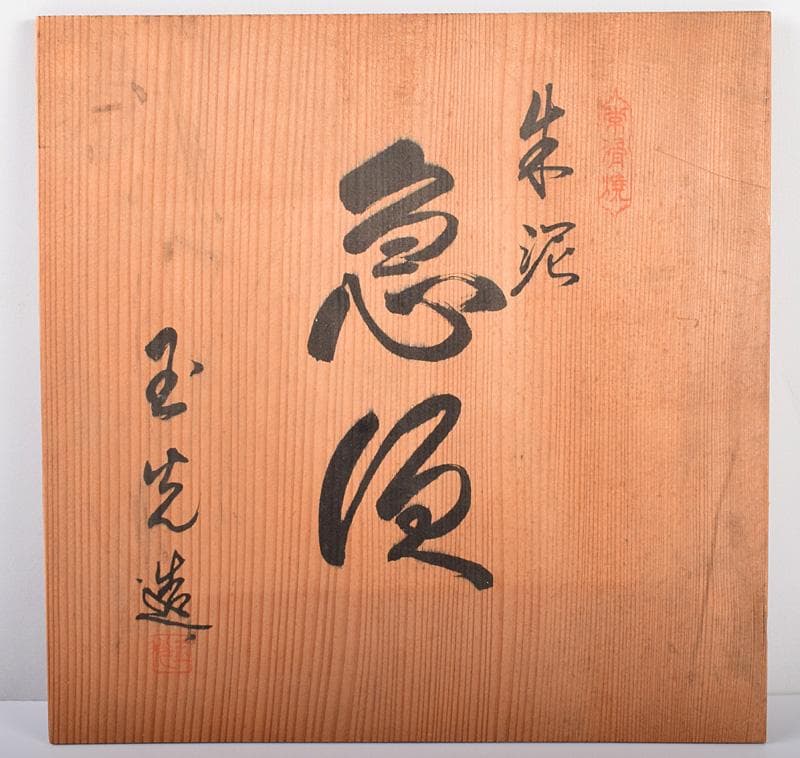 常滑焼
朱泥
急須
玉光造